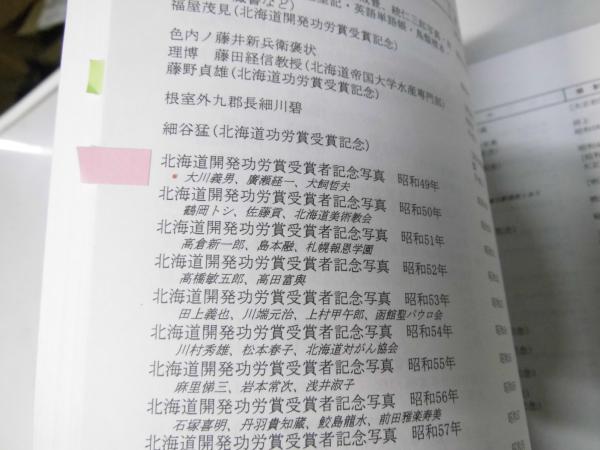 福屋茂見(北海道開発功労賞受賞記念)
色内ノ藤井新兵衛褒状
理博　藤田経信教授(北海道帝国大学水産専門部)
藤野貞雄(北海道功労賞受賞記念)
根室外九郡長細川碧
細谷猛(北海道功労賞受賞記念)
北海道開発功労賞受賞者記念写真　昭和49年
大川義男、廣瀬経一、犬飼哲夫
北海道開発功労賞受賞者記念写真　昭和50年
鶴岡トシ、佐藤貢、北海道美術教会
北海道開発功労賞受賞者記念写真　昭和51年
高倉新一郎、島本融、札幌報恩学園
北海道開発功労賞受賞者記念写真　昭和52年
高橋敏五郎、高田富與
北海道開発功労賞受賞者記念写真　昭和53年
田上義也、川端元治、上村甲午郎、函館聖パウロ会
北海道開発功労賞受賞者記念写真　昭和54年
川村秀雄、松本春子、北海道対がん協会
北海道開発功労賞受賞者記念写真　昭和55年
麻里悌三、岩本常次、浅井淑子
北海道開発功労賞受賞者記念写真　昭和56年
石塚喜明、丹羽貴知蔵、鮫島龍水、前田雅楽寿美
北海道開発功労賞受賞者記念写真　昭和57年